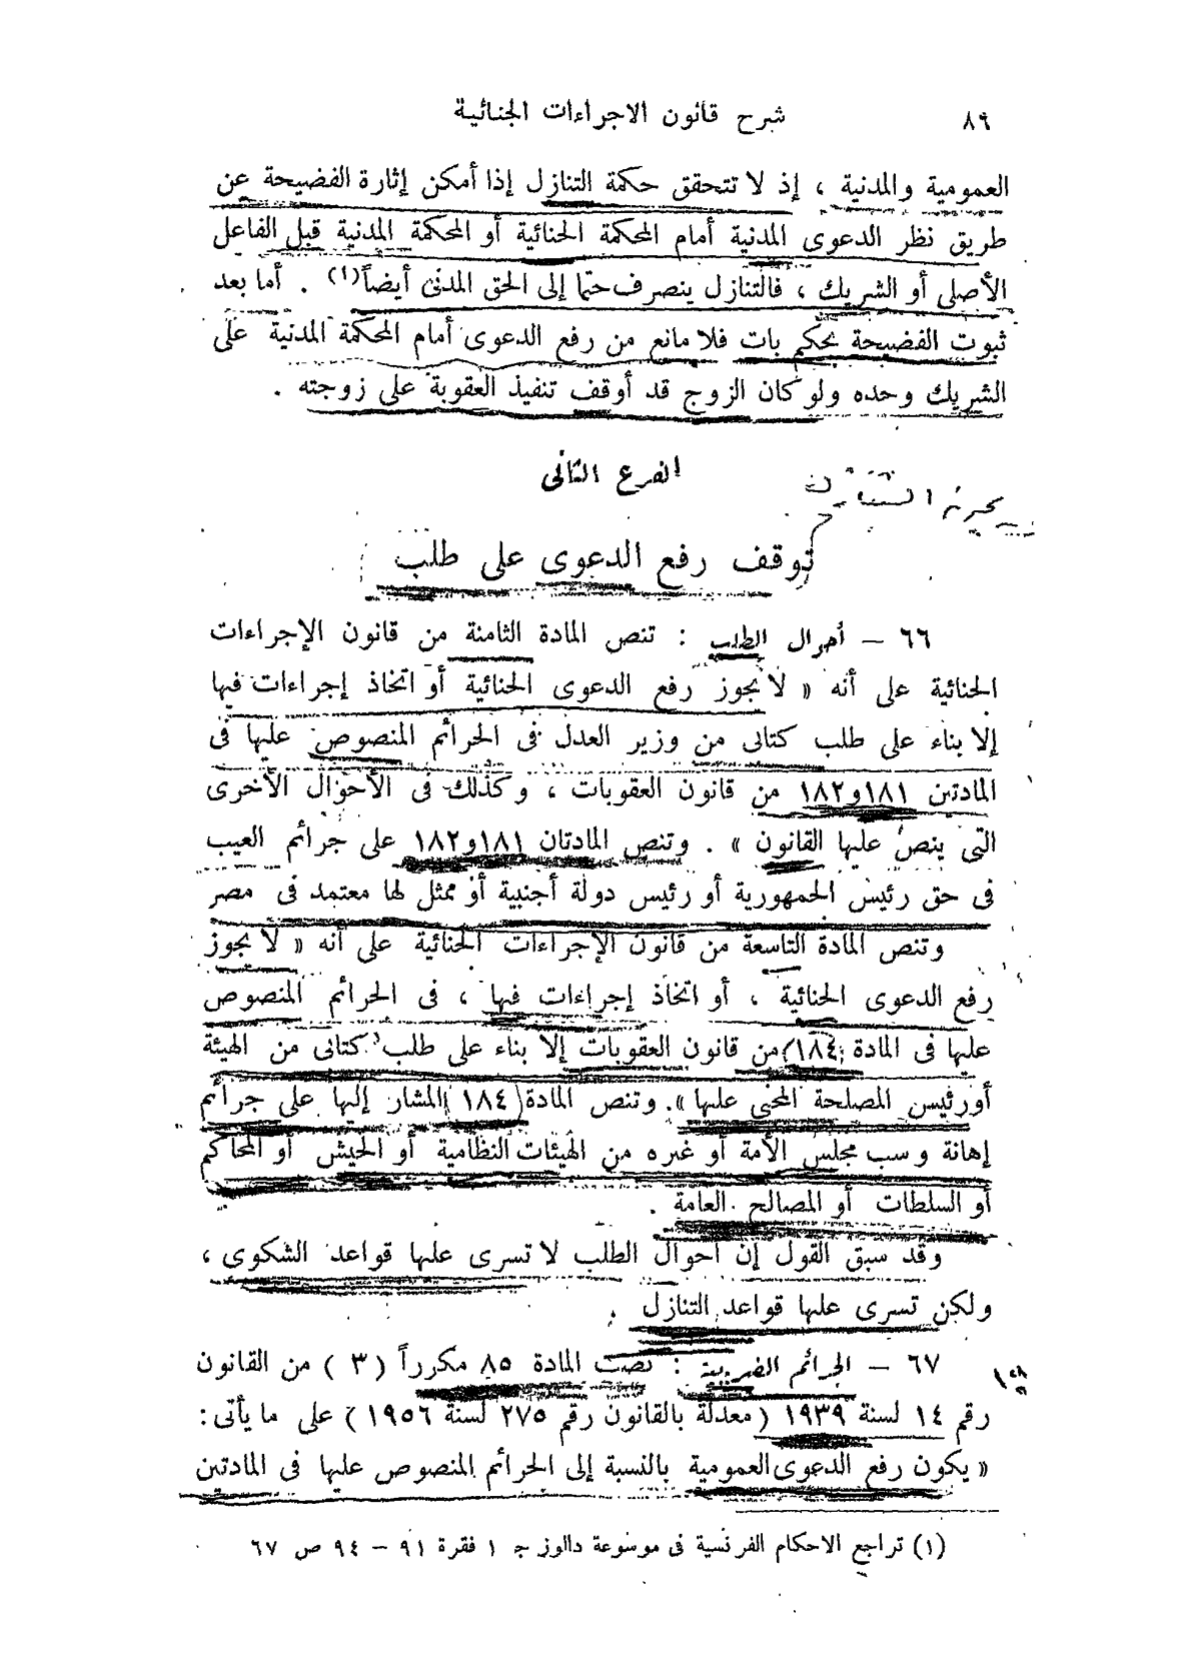 ٨٩ شرح قانون الاجراءات الجنائية
العمومية والمدنية ، إذ لا تتحقق حكمة التنازل إذا أمكن إثارة الفضيحة عن
طريق نظر الدعوى المدنية أمام المحكمة الجنائية أو المحكمة المدنية قبل الفاعل
الأصلى أو الشريك ، فالتنازل ينصرف حتما إلى الحق المدنى أيضاً(١) . أما بعد
ثبوت الفضيحة بحكم بات فلا مانع من رفع الدعوى أمام المحكمة المدنية على
الشريك وحده ولو كان الزوج قد أوقف تنفيذ العقوبة على زوجته .
الفرع الثانى
توقف رفع الدعوى على طلب
٦٦ – أحوال الطلب : تنص المادة الثامنة من قانون الإجراءات
الجنائية على أنه « لا يجوز رفع الدعوى الجنائية أو اتخاذ إجراءات فيها
إلا بناء على طلب كتابى من وزير العدل فى الجرائم المنصوص عليها فى
المادتين ١٨١و١٨٢ من قانون العقوبات ، وكذلك فى الأحوال الأخرى
التى ينص عليها القانون » . وتنص المادتان ١٨١و١٨٢ على جرائم العيب
فى حق رئيس الجمهورية أو رئيس دولة أجنبية أو ممثل لها معتمد فى مصر
وتنص المادة التاسعة من قانون الإجراءات الجنائية على أنه « لا يجوز
رفع الدعوى الجنائية ، أو اتخاذ إجراءات فيها ، فى الجرائم المنصوص
عليها فى المادة (١٨٤) من قانون العقوبات إلا بناء على طلب كتابى من الهيئة
أو رئيس المصلحة المجنى عليها ». وتنص المادة (١٨٤) المشار إليها على جرائم
إهانة وسب مجلس الأمة أو غيره من الهيئات النظامية أو الجيش أو المحاكم
أو السلطات أو المصالح العامة .
وقد سبق القول إن أحوال الطلب لا تسرى عليها قواعد الشكوى ،
ولكن تسرى عليها قواعد التنازل .
٦٧ – الجرائم الضريبية : نصت المادة ٨٥ مكرراً (٣) من القانون
رقم ١٤ لسنة ١٩٣٩ (معدلة بالقانون رقم ٢٧٥ لسنة ١٩٥٦) على ما يأتى :
« يكون رفع الدعوى العمومية بالنسبة إلى الجرائم المنصوص عليها فى المادتين
(١) تراجع الاحكام الفرنسية فى موسوعة داالوز ج ١ فقرة ٩١ – ٩٤ ص ٦٧